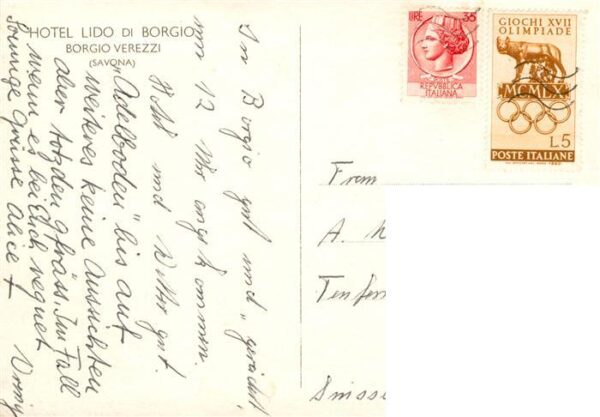 HOTEL LIDO DI BORGIO
BORGIO VEREZZI
(SAVONA)
LIRE 35
POSTE
REPVBBLICA
ITALIANA
GIOCHI XVII
OLIMPIADE
MCMLX
L.5
POSTE ITALIANE
In Borgio gut und
um 12 Uhr angekommen.
Hotel und Wetter gut.
"Adelboden" bis auf
weiteres keine Aussichten
aber trotzdem Im Fall
wenn es bei Euch regnet
Sonnige Grüsse Alice +
Frau
A.
Suisse